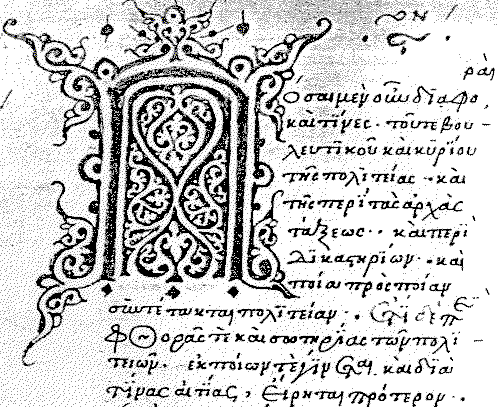 ραὶ
Πόσαι μὲν οὖν διαφο
καὶ τίνες · τοῦ τε βου-
λευτικοῦ καὶ κυρίου
τῆς πολιτείας · καὶ
τῆς περὶ τὰς ἀρχὰς
τάξεως · καὶ περὶ
δικαστηρίων · καὶ
ποία πρὸς ποίαν
συντέτακται πολιτείαν · ἔτι δὲ περὶ
φθορᾶς τὲ καὶ σωτηρίας τῶν πολι-
τειῶν · ἐκ ποίων τὲ γίνεται καὶ διὰ
τίνας αἰτίας, εἴρηται πρότερον ·